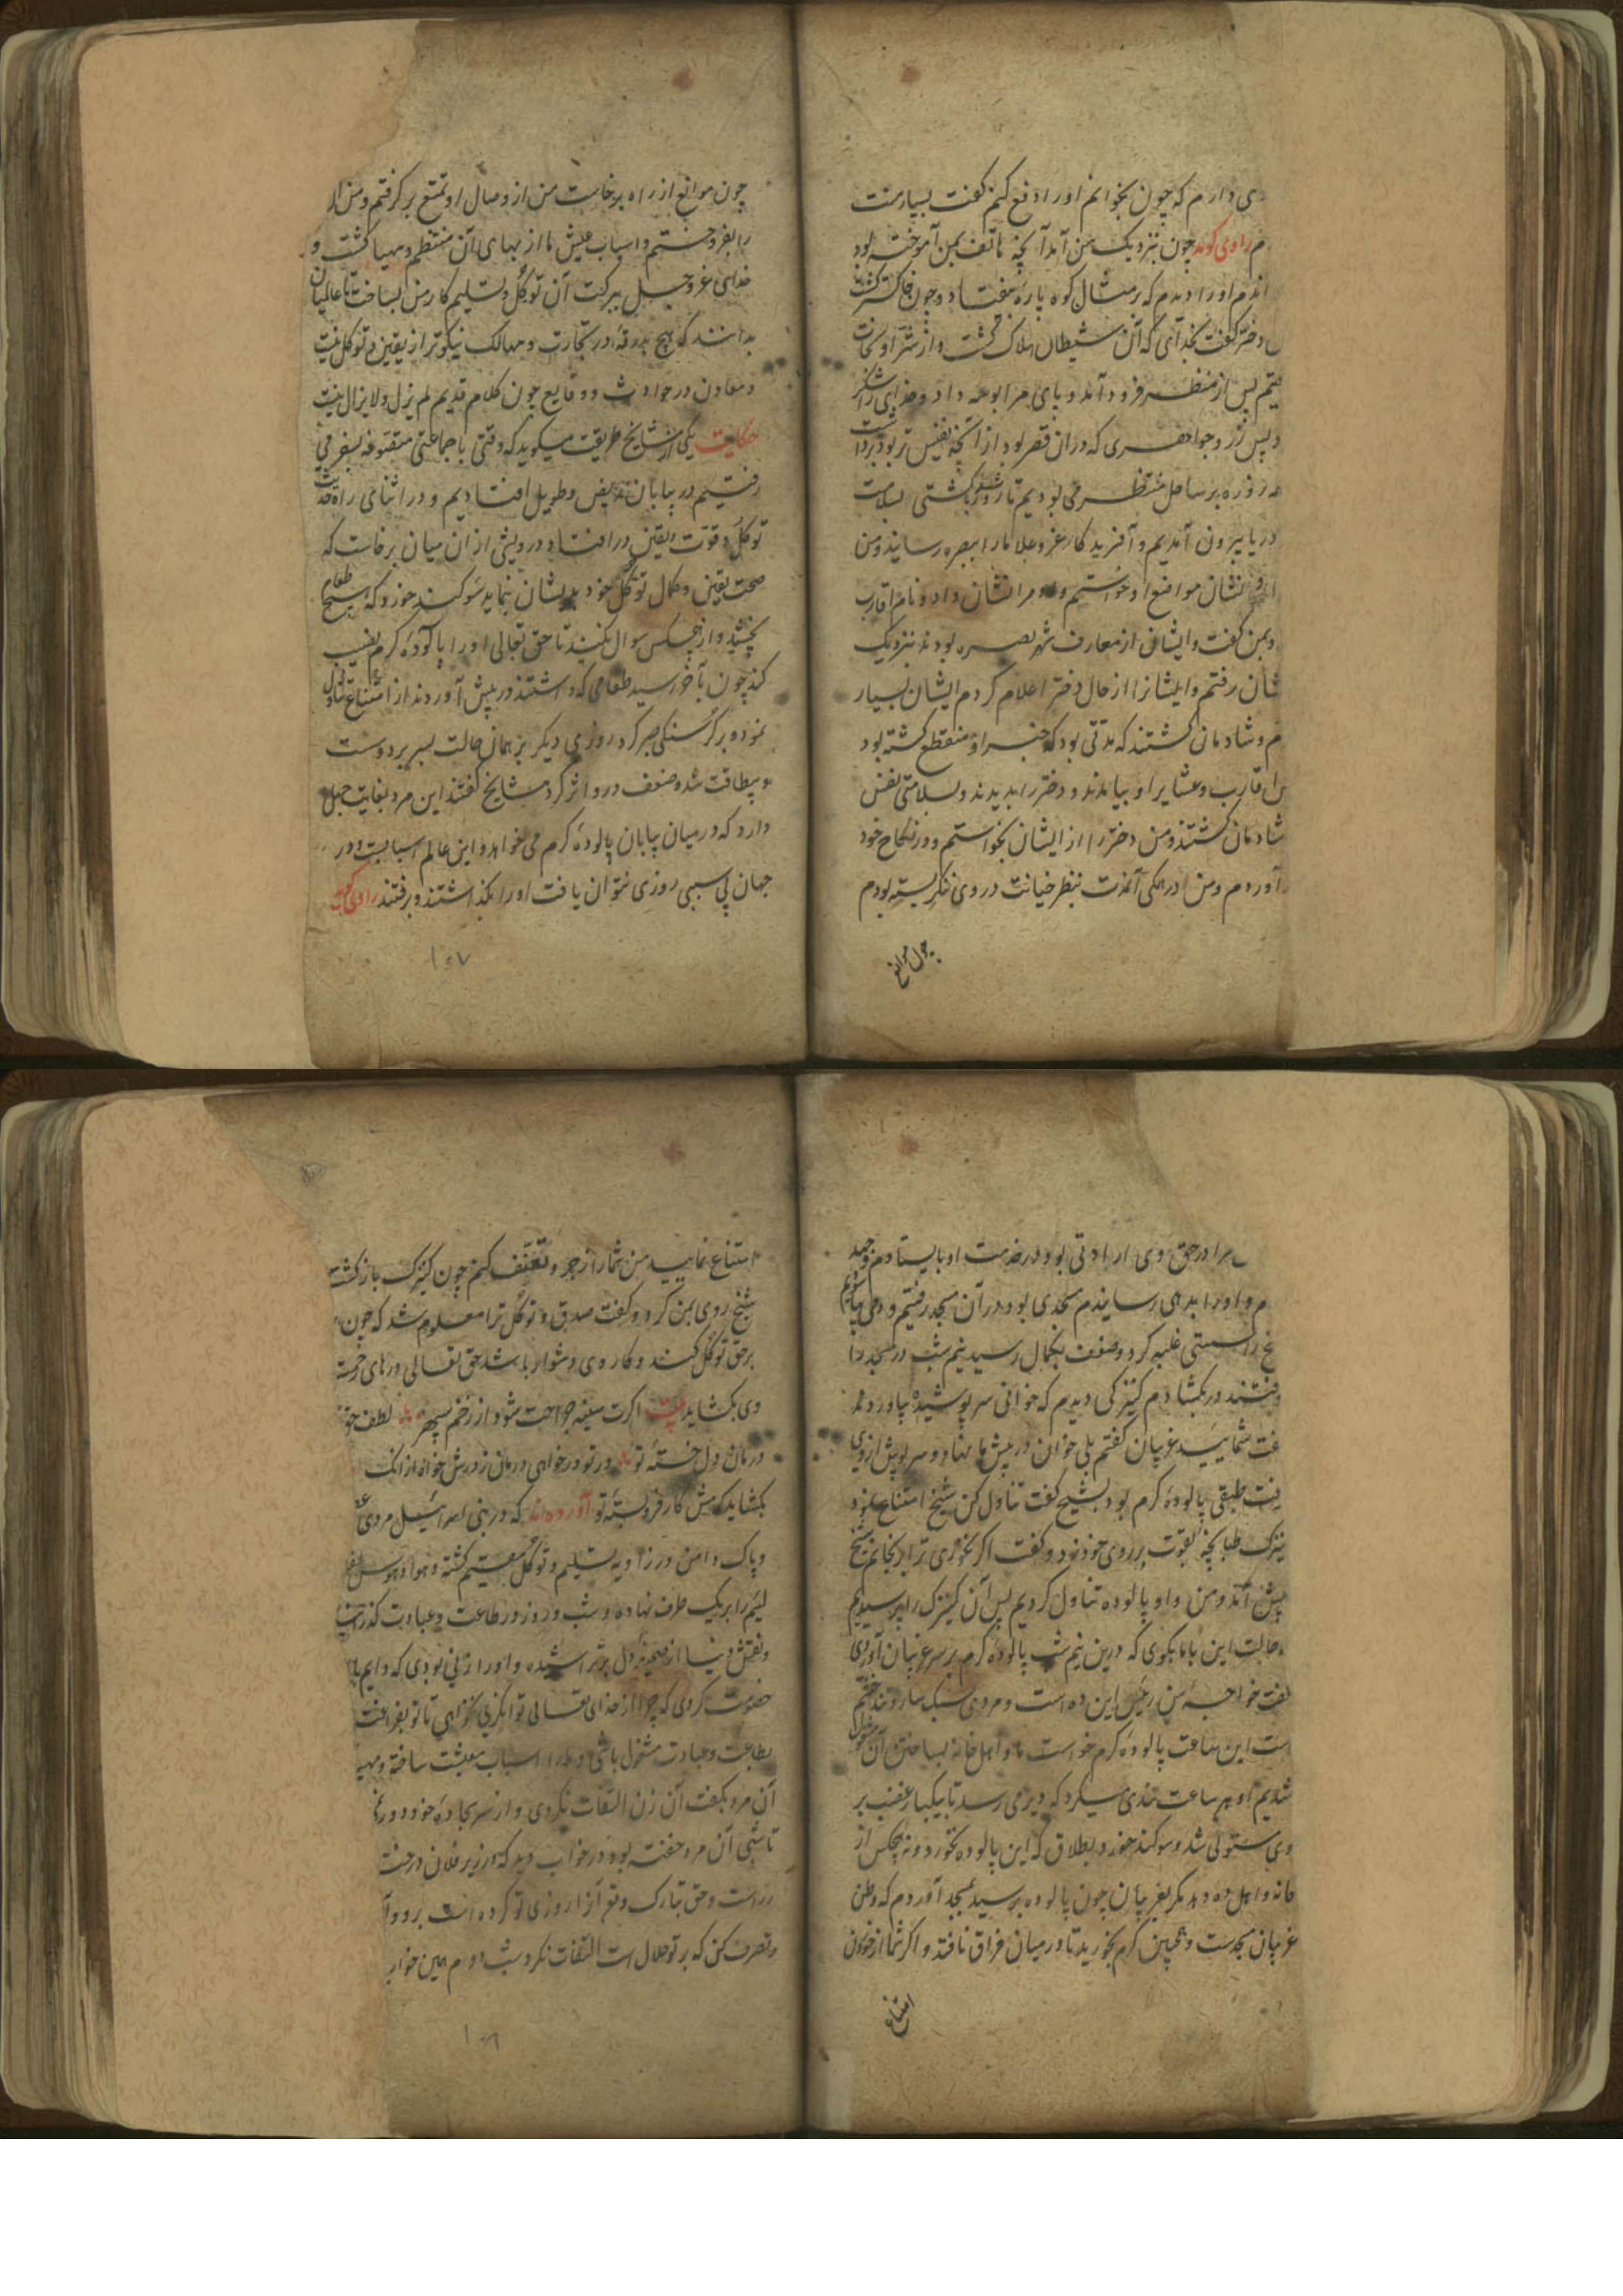 ی دارم که چون بخوانم او را دفع کنم گفت بسیار منت
م راوی گوید چون بنزدیک من آمد آنچه هاتف بمن آموخته بود
او را دیدم که بر مثال کوه پاره بیفتاد و چون خاکستر گشت
دختر گفت بخدای که آن شیطان هلاک گشت و از شر او نجات
پس از منظر فرود آمد و پای مرا بوسه داد و خدایرا شکر
و پس زر و جواهری که دران قصر بود از آنچه نفیس تر بود برداشت
روزه بر ساحل منتظر می بودیم تا روزی کشتی بسلامت
دریا بیرون آمدیم و آفریدکار عز و علا ما را ببصره رسانید و من
نشان مواضع او خواستم و مرا نشان داد و نام اقارب
و بمن گفت و ایشان از معارف شهر بصره بودند بنزدیک
شان رفتم و ایشانرا از حال دختر اعلام کردم ایشان بسیار
م و شادمان گشتند که مدتی بود که خبر او منقطع گشته بود
اقارب و عشایر او بیامدند و دختر را بدیدند و بسلامتی نفس
شادمان گشتند و من دختر را از ایشان بخواستم و در نکاح خود
آوردم و من در همگی آنمدت بنظر خیانت در وی ننگریسته بودم
چون موانع
چون موانع از راه برخاست من از وصال او تمتع برگرفتم و من
را بفروختم و اسباب عیش ما از بهای آن منتظم و مهیا گشت و
خدای عز و جل ببرکت آن توکل و تسلیم کار من بساخت تا عالمیان
بدانند که هیچ بدرقه در تجارت و مهالک نیکوتر از یقین و توکل نیست
و معاون در حوادث و وقایع چون کلام قدیم لم یزل و لا یزال نیست
حکایت یکی از مشایخ طریقت میگوید که وقتی با جماعتی متصوفه بسفر می
رفتیم در بیابان و طویل افتادیم و در اثنای راه حدیث
توکل و قوت یقین در افتاد درویشی از ان میان برخاست که
صحت یقین و کمال توکل خود بدیشان نماید سوگند خورد که هیچ طعام
نچشد و از هیچکس سوال نکند تا حق تعالی او را پالوده گرم نصیب
کند چون بآخر رسید طعامی که داشتند در پیش آوردند از امتناع تناول
نمود و بر گرسنگی صبر کرد روزی دیگر بر همان حالت بسر برد و سست
و بیطاقت شد و ضعف درو اثر کرد مشایخ گفتند این مرد بغایت جهل
دارد که در میان بیابان پالوده گرم می خواهد و این عالم اسبابست و در
جهان بی سببی روزی نتوان یافت او را بگذاشتند و برفتند راوی گوید
۱۰۷
مرا در حق وی ارادتی بود در خدمت او بایستادم و جهد
م و او را بدهی رسانیدم مسجدی بود در آن مسجد رفتیم و
را سستی غلبه کرد و ضعف بکمال رسید نیم شب در مسجد را
در بگشادم کنیزکی دیدم که خوانی سرپوشیده بیاورد
شمایید غریبان گفتم بلی خوان در پیش ما بنهاد و سرپوش از وی
طبقی پالوده گرم بود بشیخ گفت تناول کن شیخ امتناع نمود
نیزک طبانچه بقوت بر روی خود زد و گفت اگر نخوری ترا برنجانم شیخ
پیش آمد و من و او پالوده تناول کردیم پس آن کنیزک را پرسیدیم
حالت این با ما بگوی که درین نیم شب پالوده گرم بر سر غریبان آوردی
گفت خواجه من رئیس این ده است و مردی سبک سار و تند خشم
است این ساعت پالوده گرم خواست ما و اهل خانه بساختن آن مشغول
شدیم او هر ساعت تندی میکرد که دیر می رسد تا بیکبار غضب بر
وی مستولی شد و سوگند خورد بطلاق که این پالوده نخورد و نه هیچکس از
خانه و اهل ده و نه مگر غریبان چون پالوده برسید بمسجد آوردم که وطن
غریبان مسجدست و همچنین گرم بخورید تا در میان فراق نافتد و اگر شما از خوردن
امتناع
امتناع نمایید من شما را زجر و تعنف کنم چون کنیزک بازگشت
شیخ روی بمن کرد و گفت صدق و توکل ترا معلوم شد که چون
بر حق توکل کند و کار وی دشوار باشد حق تعالی درهای رحمت
وی بگشاید بیت اگرت سینه جراحت شود از زخم سپهر لطف حق
درمان دل خسته تو در تو درخواهی درمان ز درش خواه از انک
بگشاید کرمش کار فرو بسته تو آورده اند که در بنی اسرائیل مردی
و پاک دامن در زاویه تسلیم و توکل مقیم گشته و هوا و هوس
لئیم را بر یک طرف نهاده و شب و روز در طاعت و عبادت گذرانیدی
و نقش دنیا از صحیفه دل بتراشیده و او را زنی بودی که دایم با
خصومت کردی که چرا از خدای تعالی توانگری نخواهی تا تو بفراغت
بطاعت و عبادت مشغول باشی و ما را اسباب معیشت ساخته و مهیا
آن مرد بگفت آن زن التفات نکردی و از سر سجاده خود دور
تا شبی آن مرد خفته بود در خواب دید که در زیر فلان درخت
است و حق تبارک و تع آنرا روزی تو کرده است برو و آ
و تصرف کن که بر تو حلال است التفات نکرد شب دوم همین خواب
۱۰۸